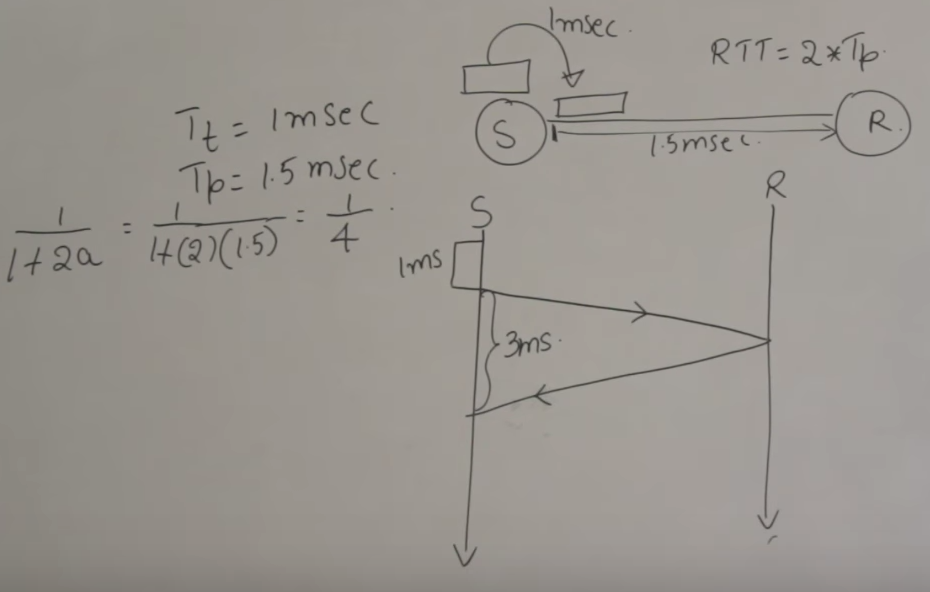 1msec.
RTT = 2*Tp.
S
R.
1.5msec.
Tt = 1msec
Tp = 1.5 msec.
1/(1+2a) = 1/(1+(2)(1.5)) = 1/4.
S
R
1ms
3ms.